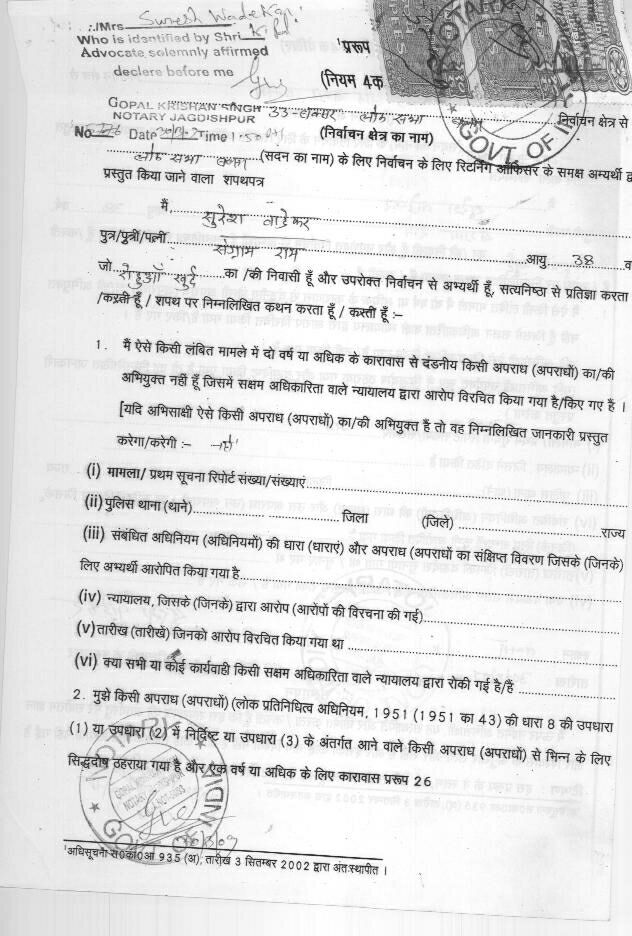 ./Mrs Suresh Wadekar
Who is identified by Shri
Advocate solemnly affirmed
declere before me
¹प्ररूप
(नियम 4क
GOPAL KRISHAN SINGH
NOTARY JAGDISHPUR
No Date Time 1.50
33-बक्सर लोक सभा निर्वाचन क्षेत्र से
(निर्वाचन क्षेत्र का नाम)
NOTARY
GOVT OF
लोक सभा (सदन का नाम) के लिए निर्वाचन के लिए रिटर्निंग ऑफिसर के समक्ष अभ्यर्थी द्व
प्रस्तुत किया जाने वाला शपथपत्र
मैं, सुरेश वाडेकर
पुत्र/पुत्री/पत्नी संग्राम राम आयु 38 व
जो खुर्द का /की निवासी हूँ और उपरोक्त निर्वाचन से अभ्यर्थी हूँ, सत्यनिष्ठा से प्रतिज्ञा करता
/करती हूँ / शपथ पर निम्नलिखित कथन करता हूँ / करती हूँ :–
1. मैं ऐसे किसी लंबित मामले में दो वर्ष या अधिक के कारावास से दंडनीय किसी अपराध (अपराधों) का/की
अभियुक्त नहीं हूँ जिसमें सक्षम अधिकारिता वाले न्यायालय द्वारा आरोप विरचित किया गया है/किए गए हैं ।
[यदि अभिसाक्षी ऐसे किसी अपराध (अपराधों) का/की अभियुक्त है तो वह निम्नलिखित जानकारी प्रस्तुत
करेगा/करेगी :–
(i) मामला/ प्रथम सूचना रिपोर्ट संख्या/संख्याएं
(ii) पुलिस थाना (थाने) जिला (जिले) राज्य
(iii) संबंधित अधिनियम (अधिनियमों) की धारा (धाराएं) और अपराध (अपराधों का संक्षिप्त विवरण जिसके (जिनके)
लिए अभ्यर्थी आरोपित किया गया है
(iv) न्यायालय, जिसके (जिनके) द्वारा आरोप (आरोपों की विरचना की गई)
(v) तारीख (तारीखें) जिनको आरोप विरचित किया गया था
(vi) क्या सभी या कोई कार्यवाही किसी सक्षम अधिकारिता वाले न्यायालय द्वारा रोकी गई है/हैं
2. मुझे किसी अपराध (अपराधों) (लोक प्रतिनिधित्व अधिनियम, 1951 (1951 का 43) की धारा 8 की उपधारा
(1) या उपधारा (2) में निर्दिष्ट या उपधारा (3) के अंतर्गत आने वाले किसी अपराध (अपराधों) से भिन्न के लिए
सिद्धदोष ठहराया गया है और एक वर्ष या अधिक के लिए कारावास प्ररूप 26
NOTARY
¹अधिसूचना स0का0आ 935 (अ), तारीख 3 सितम्बर 2002 द्वारा अंतःस्थापीत ।